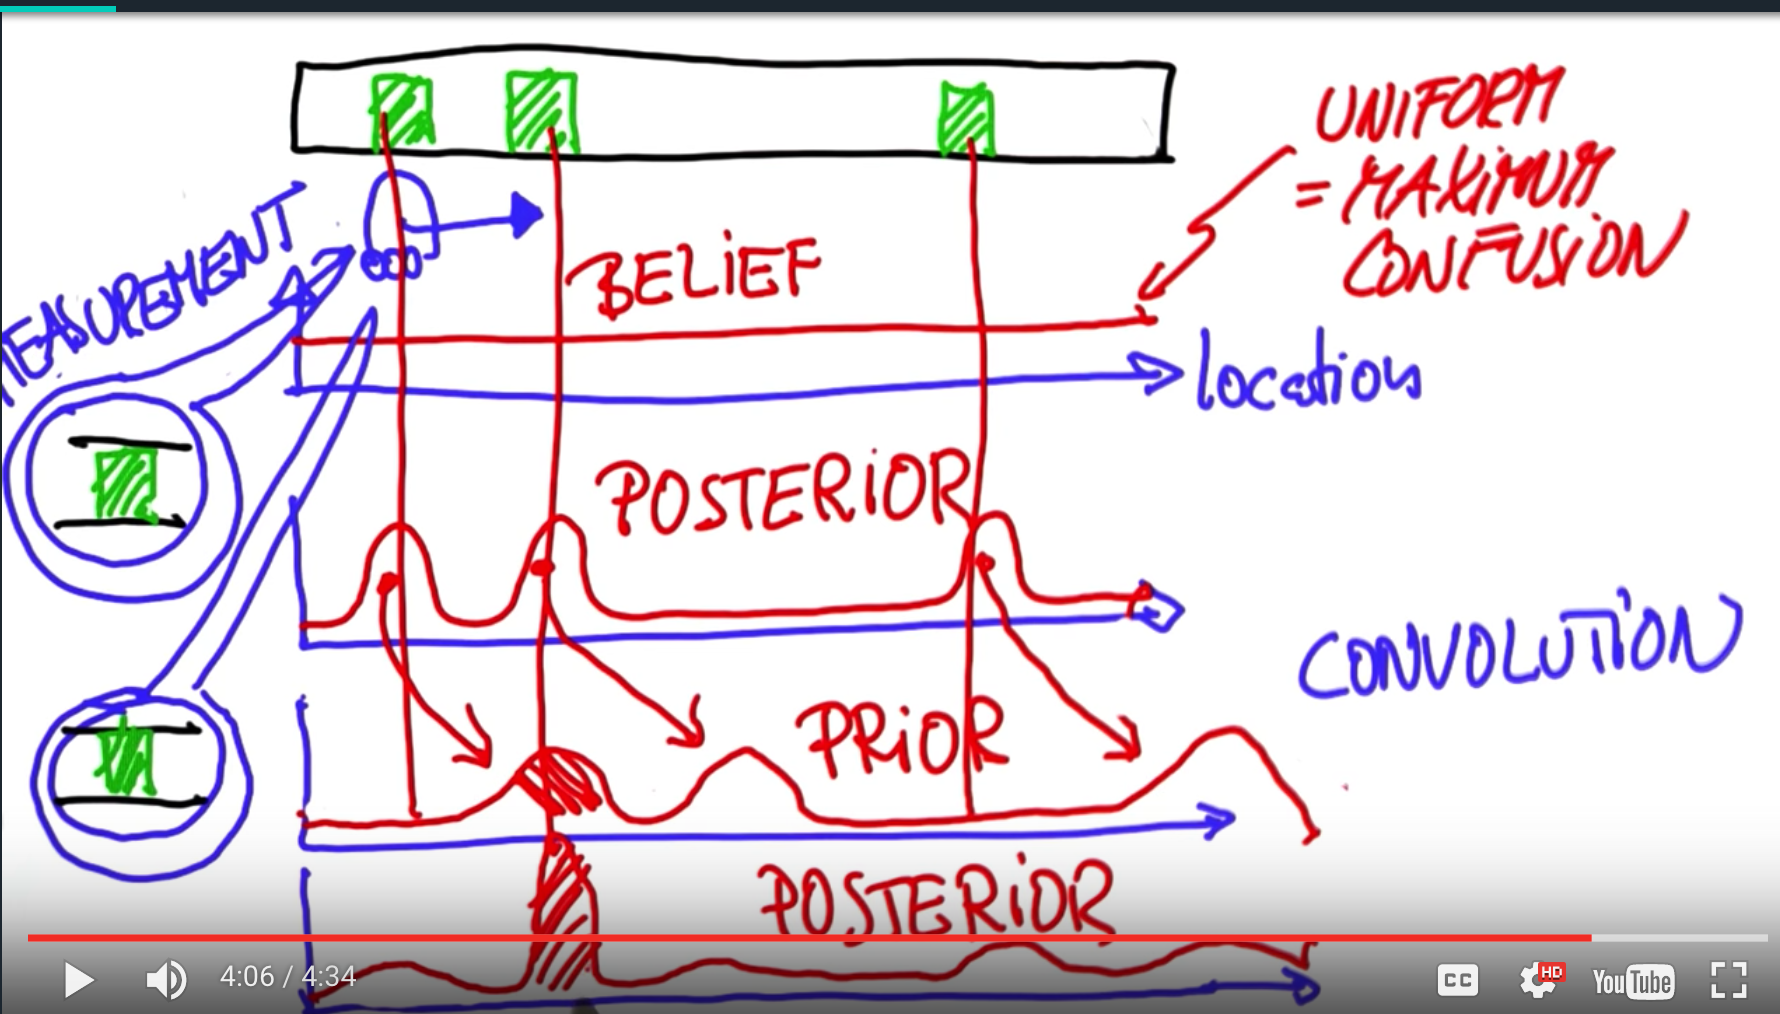 UNIFORM
= MAXIMUM
CONFUSION
MEASUREMENT
BELIEF
location
POSTERIOR
CONVOLUTION
PRIOR
POSTERIOR
4:06 / 4:34
CC
HD
YouTube